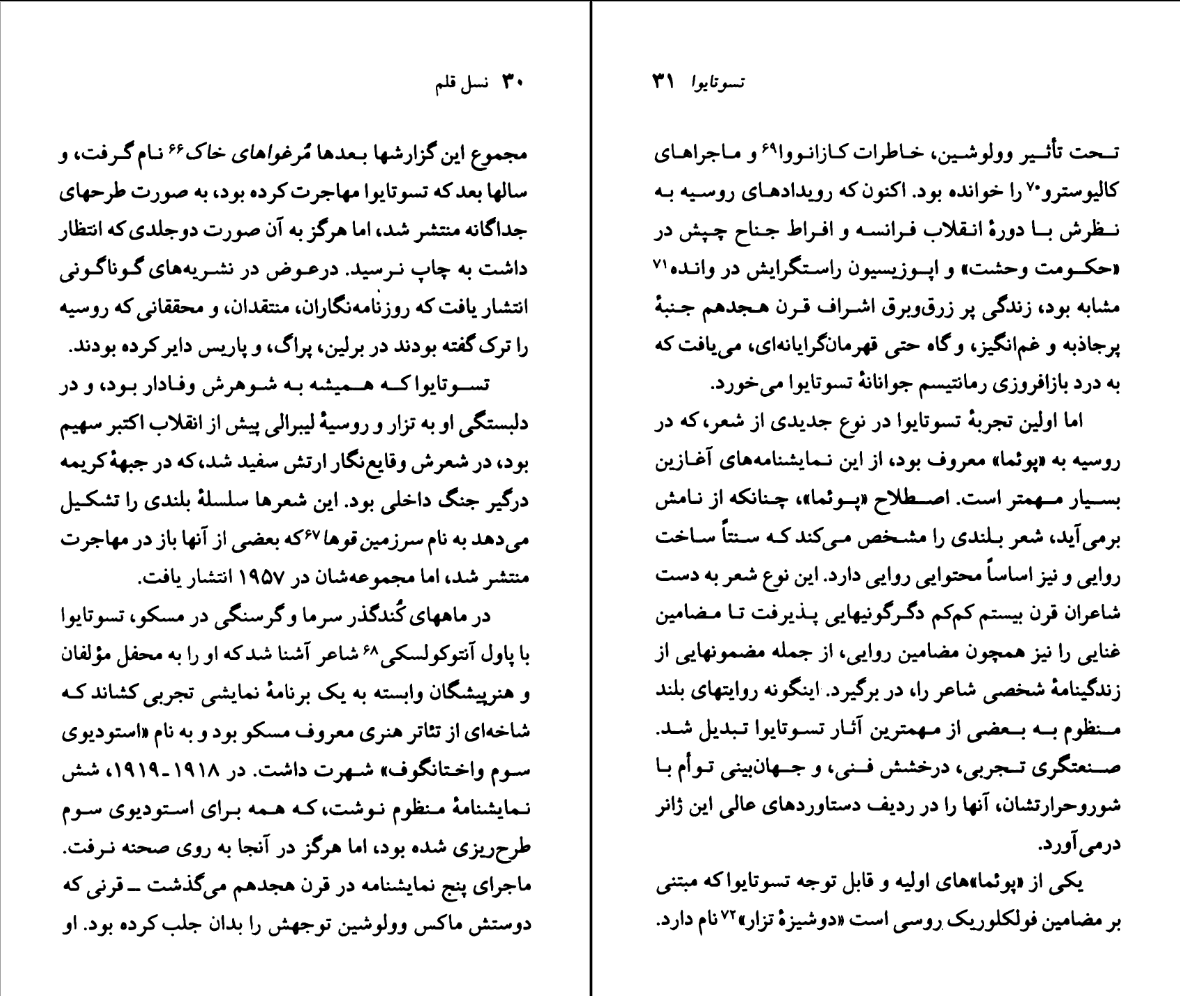 ۳۰ نسل قلم
مجموع این گزارشها بعدها مُرغواهای خاک۶۶ نام گرفت، و
سالها بعد که تسوتایوا مهاجرت کرده بود، به صورت طرحهای
جداگانه منتشر شد، اما هرگز به آن صورت دوجلدی که انتظار
داشت به چاپ نرسید. درعوض در نشریه‌های گوناگونی
انتشار یافت که روزنامه‌نگاران، منتقدان، و محققانی که روسیه
را ترک گفته بودند در برلین، پراگ، و پاریس دایر کرده بودند.
تسوتایوا که همیشه به شوهرش وفادار بود، و در
دلبستگی او به تزار و روسیهٔ لیبرالی پیش از انقلاب اکتبر سهیم
بود، در شعرش وقایع‌نگار ارتش سفید شد، که در جبههٔ کریمه
درگیر جنگ داخلی بود. این شعرها سلسلهٔ بلندی را تشکیل
می‌دهد به نام سرزمین قوها۶۷ که بعضی از آنها باز در مهاجرت
منتشر شد، اما مجموعه‌شان در ۱۹۵۷ انتشار یافت.
در ماههای کُندگذر سرما و گرسنگی در مسکو، تسوتایوا
با پاول آنتوکولسکی۶۸ شاعر آشنا شد که او را به محفل مؤلفان
و هنرپیشگان وابسته به یک برنامهٔ نمایشی تجربی کشاند که
شاخه‌ای از تئاتر هنری معروف مسکو بود و به نام «استودیوی
سوم واختانگوف» شهرت داشت. در ۱۹۱۸-۱۹۱۹، شش
نمایشنامهٔ منظوم نوشت، که همه برای استودیوی سوم
طرح‌ریزی شده بود، اما هرگز در آنجا به روی صحنه نرفت.
ماجرای پنج نمایشنامه در قرن هجدهم می‌گذشت ــ قرنی که
دوستش ماکس وولوشین توجهش را بدان جلب کرده بود. او
تسوتایوا ۳۱
تحت تأثیر وولوشین، خاطرات کازانووا۶۹ و ماجراهای
کالیوسترو۷۰ را خوانده بود. اکنون که رویدادهای روسیه به
نظرش با دورهٔ انقلاب فرانسه و افراط جناح چپش در
«حکومت وحشت» و اپوزیسیون راستگرایش در وانده۷۱
مشابه بود، زندگی پر زرق‌وبرق اشراف قرن هجدهم جنبهٔ
پرجاذبه و غم‌انگیز، و گاه حتی قهرمان‌گرایانه‌ای، می‌یافت که
به درد بازافروزی رمانتیسم جوانانهٔ تسوتایوا می‌خورد.
اما اولین تجربهٔ تسوتایوا در نوع جدیدی از شعر، که در
روسیه به «پوئما» معروف بود، از این نمایشنامه‌های آغازین
بسیار مهمتر است. اصطلاح «پوئما»، چنانکه از نامش
برمی‌آید، شعر بلندی را مشخص می‌کند که سنتاً ساخت
روایی و نیز اساساً محتوایی روایی دارد. این نوع شعر به دست
شاعران قرن بیستم کم‌کم دگرگونیهایی پذیرفت تا مضامین
غنایی را نیز همچون مضامین روایی، از جمله مضمونهایی از
زندگینامهٔ شخصی شاعر را، در برگیرد. اینگونه روایتهای بلند
منظوم به بعضی از مهمترین آثار تسوتایوا تبدیل شد.
صنعتگری تجربی، درخشش فنی، و جهان‌بینی توأم با
شوروحرارتشان، آنها را در ردیف دستاوردهای عالی این ژانر
درمی‌آورد.
یکی از «پوئما»های اولیه و قابل توجه تسوتایوا که مبتنی
بر مضامین فولکلوریک روسی است «دوشیزهٔ تزار»۷۲ نام دارد.